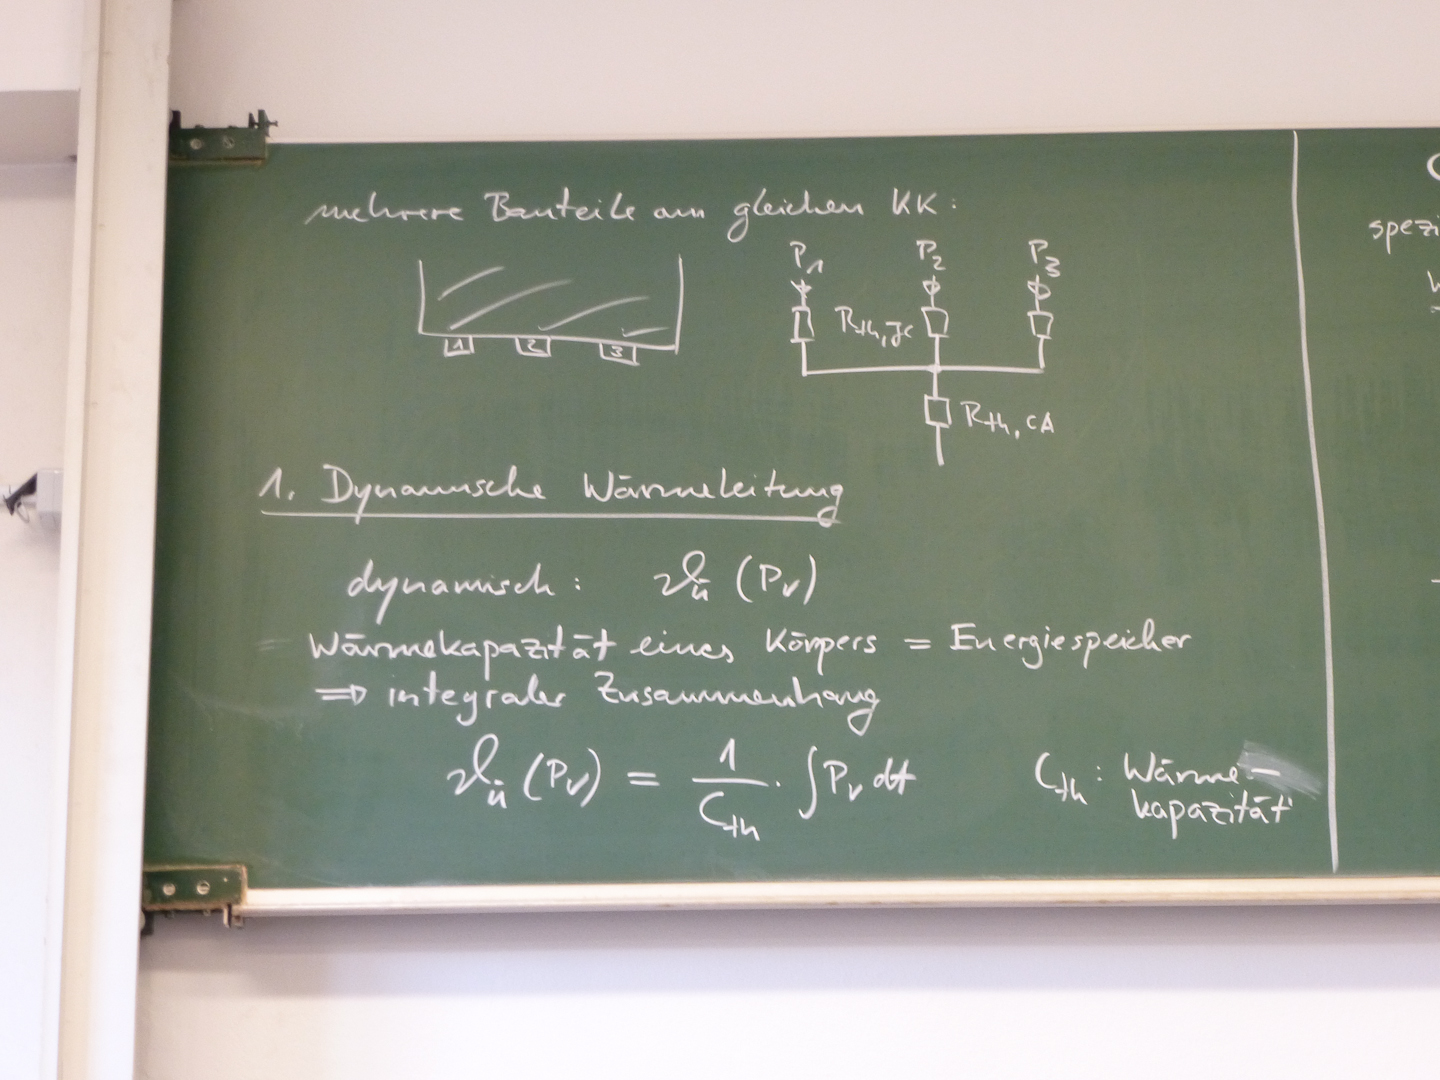 mehrere Bauteile am gleichen KK:
P1 P2 P3
Rth,JC
1 2 3
Rth,CA
1. Dynamische Wärmeleitung
dynamisch: ϑü (Pv)
Wärmekapazität eines Körpers = Energiespeicher
⇒ integraler Zusammenhang
ϑü (Pv) = 1/Cth · ∫ Pv dt
Cth: Wärme-
kapazität
spezi